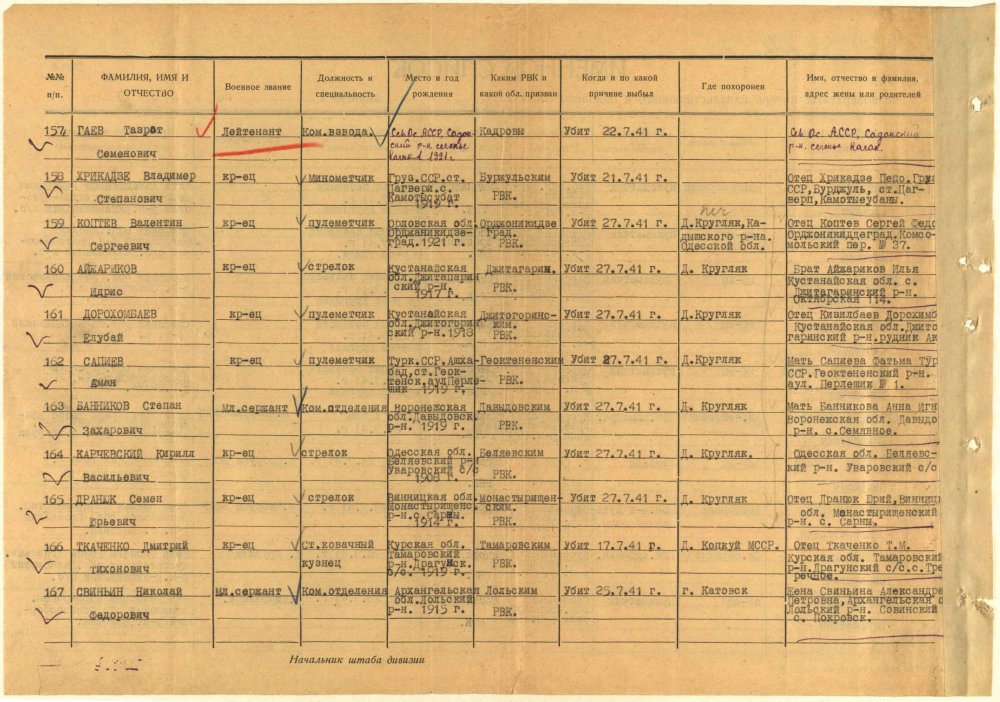 №№ п/п.
ФАМИЛИЯ, ИМЯ И ОТЧЕСТВО
Военное звание
Должность и специальность
Место и год рождения
Каким РВК и какой обл. призван
Когда и по какой причине выбыл
Где похоронен
Имя, отчество и фамилия, адрес жены или родителей
157 ГАЕВ Тазрет Лейтенант Ком.взвода. Сев.Ос. АССР, Садон- Кадровы Убит 22.7.41 г. Сев. Ос. АССР, Садонский
Семенович ский р-н. селенье 1921 г. р-н. селенье
158 ХРИКАДЗЕ Владимир кр-ец Минометчик Груз.ССР.ст. Буржульским Убит 21.7.41 г. Отец Хрикадзе Пепо.Груз
Степанович Цагвери.с. РВК. ССР,Бурджуль, ст.Цаг-
Камотысубат вери,Камотыеубаны.
1919 г.
159 КОПТЕВ Валентин кр-ец пулеметчик Орловская обл. Орджоникидзе- Убит 27.7.41 г. Д.Кругляк,Ка- Отец Коптев Сергей Федо
Сергеевич Орджаникидзе- град. дышского р-на. Орджоникиддеград.Комсо-
град.1921 г. РВК. Одесской обл. мольский пер. № 37.
160 АЙЖАРИКОВ кр-ец стрелок Кустанайская Джитагарин. Убит 27.7.41 г. Д. Кругляк Брат Айжариков Илья
Идрис обл.Джитапарин РВК. Кустанайская обл. с.
ский р-н. Джитагаринский р-н.
1917 г. Октябрская 114.
161 ДОРОХОМБАЕВ кр-ец пулеметчик Кустанайская Джитогоринс- Убит 27.7.41 г. Д.Кругляк Отец Кизилбаев Дорохимб
Елубай обл.Джитогорин ким. Кустанайская обл.Джито
ский р-н.1918 РВК. гаринский р-н.рудник Ак
162 САПИЕВ кр-ец пулеметчик Турк.ССР.Ашха- Геоктененским Убит 27.7.41 г. Д.Кругляк Мать Сапиева Фатьма Тур
Аман бад,ст.Геок- РВК. ССР.Геоктененский р-н.
тенск.аулПерле- аул. Перлешик № 1.
шик 1919 г,
163 БАННИКОВ Степан Мл.сержант Ком.отделения Воронежская Давыдовским Убит 27.7.41 г. Д. Кругляк Мать Банникова Анна Игн
Захарович обл.Давыдовск. РВК. Воронежская обл. Давыдо
р-н. 1919 г. р-н. с.Семявное.
164 КАРЧЕВСКИЙ Кирилл кр-ец стрелок Одесская обл. Беляевским Убит 27.7.41 г. Д. Кругляк. Одесская обл. Беляевс-
Васильевич Беляевский р-н РВК. кий р-н. Уваровский с/с
Уваровский с/с
1908 г.
165 ДРАНЮК Семен кр-ец стрелок Винницкая обл. Монастырищен- Убит 27.7.41 г. Д. Кругляк Отец Дранюк Юрий,Винниц
Юрьевич Монастырищенс. ским. обл. Монастырищенский
р-н.с.Сарны. РВК. р-н. с. Сарны.
1914 г.
166 ТКАЧЕНКО Дмитрий кр-ец Ст.ковачный Курская обл. Тамаровским Убит 17.7.41 г. Д. Копкуй МССР. Отец Ткаченко Т.М.
Тихонович кузнец Тамаровский РВК. Курская обл. Тамаровский
р-н.Драгунск. р-н.Драгунский с/с.с.Тре
с/с. 1919 г. речное.
167 СВИНЬИН Николай Мл.сержант Ком.отделения Архангельская Лольским Убит 25.7.41 г. г. Катовск Жена Свиньина Александра
Федорович обл.Лольский РВК. Петровна,Архангельская о
р-н. 1915 г. Лольский р-н. Совинский
с. Покровск.
Начальник штаба дивизии